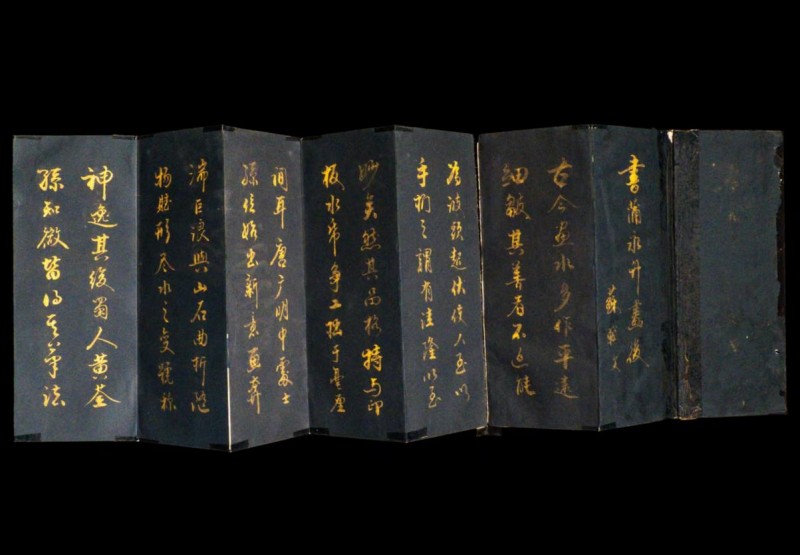 書蒲永升畫後
蘇軾文
古今畫水多作平遠
細皺其善者不過能
為波頭起伏使人至以
手捫之謂有洼隆以至
妙矣然其品格特与印
板水帋爭工拙于毫厘
間耳唐广明中處士
孫位始出新意畫奔
湍巨浪與山石曲折隨
物賦形尽水之變號称
神逸其後蜀人黃荃
孫知微皆得其筆法